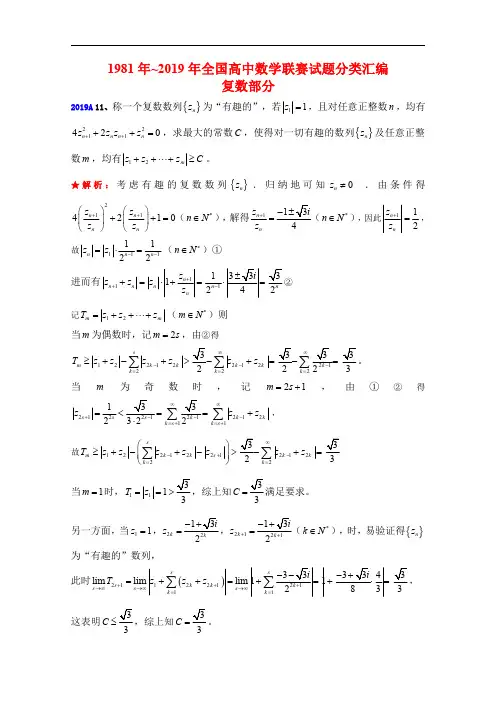 1981 年~2019 年全国高中数学联赛试题分类汇编
复数部分
2019A 11、称一个复数数列 {z_n} 为“有趣的”，若 |z_1| = 1，且对任意正整数 n，均有
4z_{n+1}^2 + 2z_n z_{n+1} + z_n^2 = 0，求最大的常数 C，使得对一切有趣的数列 {z_n} 及任意正整
数 m，均有 |z_1 + z_2 + ⋯ + z_m| ≥ C。
★解析：考虑有趣的复数数列 {z_n}．归纳地可知 z_n ≠ 0 ．由条件得
4(z_{n+1}/z_n)^2 + 2(z_{n+1}/z_n) + 1 = 0（n∈N^*），解得 z_{n+1}/z_n = (-1±√3i)/4（n∈N^*），因此 |z_{n+1}/z_n| = 1/2，
故 |z_n| = |z_1|·1/2^{n-1} = 1/2^{n-1}（n∈N^*）①
进而有 |z_{n+1} + z_n| = |z_n|·|1 + z_{n+1}/z_n| = 1/2^{n-1}·|(3±√3i)/4| = √3/2^n ②
记 T_m = |z_1 + z_2 + ⋯ + z_m|（m∈N^*）则
当 m 为偶数时，记 m = 2s，由②得
T_m ≥ |z_1 + z_2| - ∑_{k=2}^{s} |z_{2k-1} + z_{2k}| > √3/2 - ∑_{k=2}^{∞} |z_{2k-1} + z_{2k}| = √3/2 - ∑_{k=2}^{∞} √3/2^{2k-1} = √3/3．
当 m 为奇数时，记 m = 2s+1，由①②得
|z_{2s+1}| = 1/2^{2s} < √3/(3·2^{2s-1}) = ∑_{k=s+1}^{∞} √3/2^{2k-1} = ∑_{k=s+1}^{∞} |z_{2k-1} + z_{2k}|．
故 T_m ≥ |z_1 + z_2| - (∑_{k=2}^{s} |z_{2k-1} + z_{2k}| - |z_{2s+1}|) > √3/2 - ∑_{k=2}^{∞} |z_{2k-1} + z_{2k}| = √3/3
当 m = 1 时，T_1 = |z_1| = 1 > √3/3，综上知 C = √3/3 满足要求。
另一方面，当 z_1 = 1，z_{2k} = (-1+√3i)/2^{2k}，z_{2k+1} = (-1+√3i)/2^{2k+1}（k∈N^*），时，易验证得 {z_n}
为“有趣的”数列，
此时 lim_{s→∞} T_{2s+1} = lim_{s→∞} |z_1 + ∑_{k=1}^{s} (z_{2k} + z_{2k+1})| = lim_{s→∞} |1 + ∑_{k=1}^{s} (-3-√3i)/2^{2k+1}| = |1 + (-3+√3i)/8·4/3| = √3/3，
这表明 C ≤ √3/3，综上知 C = √3/3。